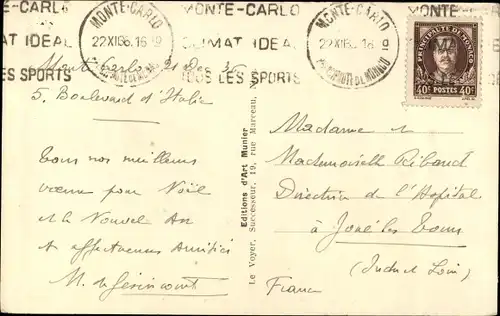 MONTE-CARLO
CLIMAT IDEAL
TOUS LES SPORTS
MONTE-CARLO
22 XII 36. 16
PRINCIPAUTÉ DE MONACO
MONTE-CARLO
22 XII 36. 16
PRINCIPAUTÉ DE MONACO
PRINCIPAUTÉ DE MONACO
40c POSTES 40c
Monte Carlo 21 Dec 36
5. Boulevard d'Italie
Tous nos meilleurs
vœux pour Noël
et le Nouvel An
et affectueuses amitiés
M. de
Editions d'Art Munier
Le Voyer, Successeur, 19, rue Marceau,
Madame et
Mademoiselle Ribaud
Directrice de l'Hôpital
à Joué les Tours
(Indre et Loire)
France